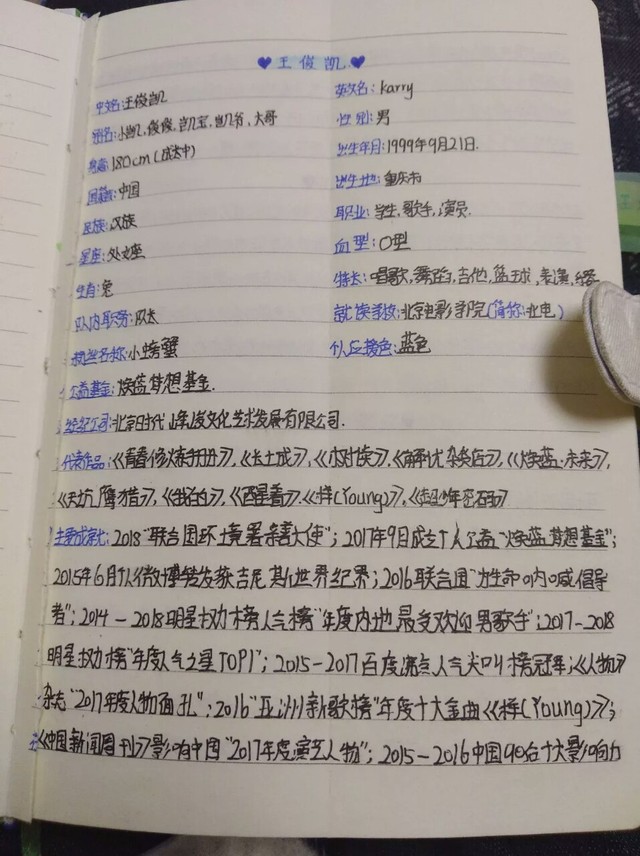 ♥王俊凯♥
中文名:王俊凯 英文名:karry
昵名:小凯,俊俊,凯宝,凯爷,大哥 性别:男
身高:180cm(成长中) 出生年月:1999年9月21日.
国籍:中国 出生地:重庆市
民族:汉族 职业:学生,歌手,演员.
星座:处女座 血型:O型
生肖:兔 特长:唱歌,舞蹈,吉他,篮球,表演
队内职务:队长 就读学校:北京电影学院(简称:北电)
粉丝名称:小螃蟹 个人应援色:蓝色
公益基金:焕蓝梦想基金.
经纪公司:北京时代峰峻文化艺术发展有限公司.
代表作品:《青春修炼手册》,《长城》,《水对候》,《解忧杂货店》,《焕蓝·未来》,
《天坑鹰猎》,《我的》,《西星着》,《样(Young)》,《超少年密码》
主要成就:2018"联合国环境署亲善大使";2017年9月成立个人公益"焕蓝梦想基金";
2015年6月个人微博转发获吉尼斯世界纪录;2016联合国"为生命呐喊倡导
者";2014-2018明星权力榜人气榜"年度内地最受欢迎男歌手";2017-2018
明星权力榜"年度人气之星TOP1";2015-2017百度沸点人气尖叫榜冠军;《人物》
杂志"2017年度人物面孔";2016"亚洲新歌榜"年度十大金曲《样(Young)》;
《中国新闻周刊》影响中国"2017年度演艺人物";2015-2016中国90后十大影响力